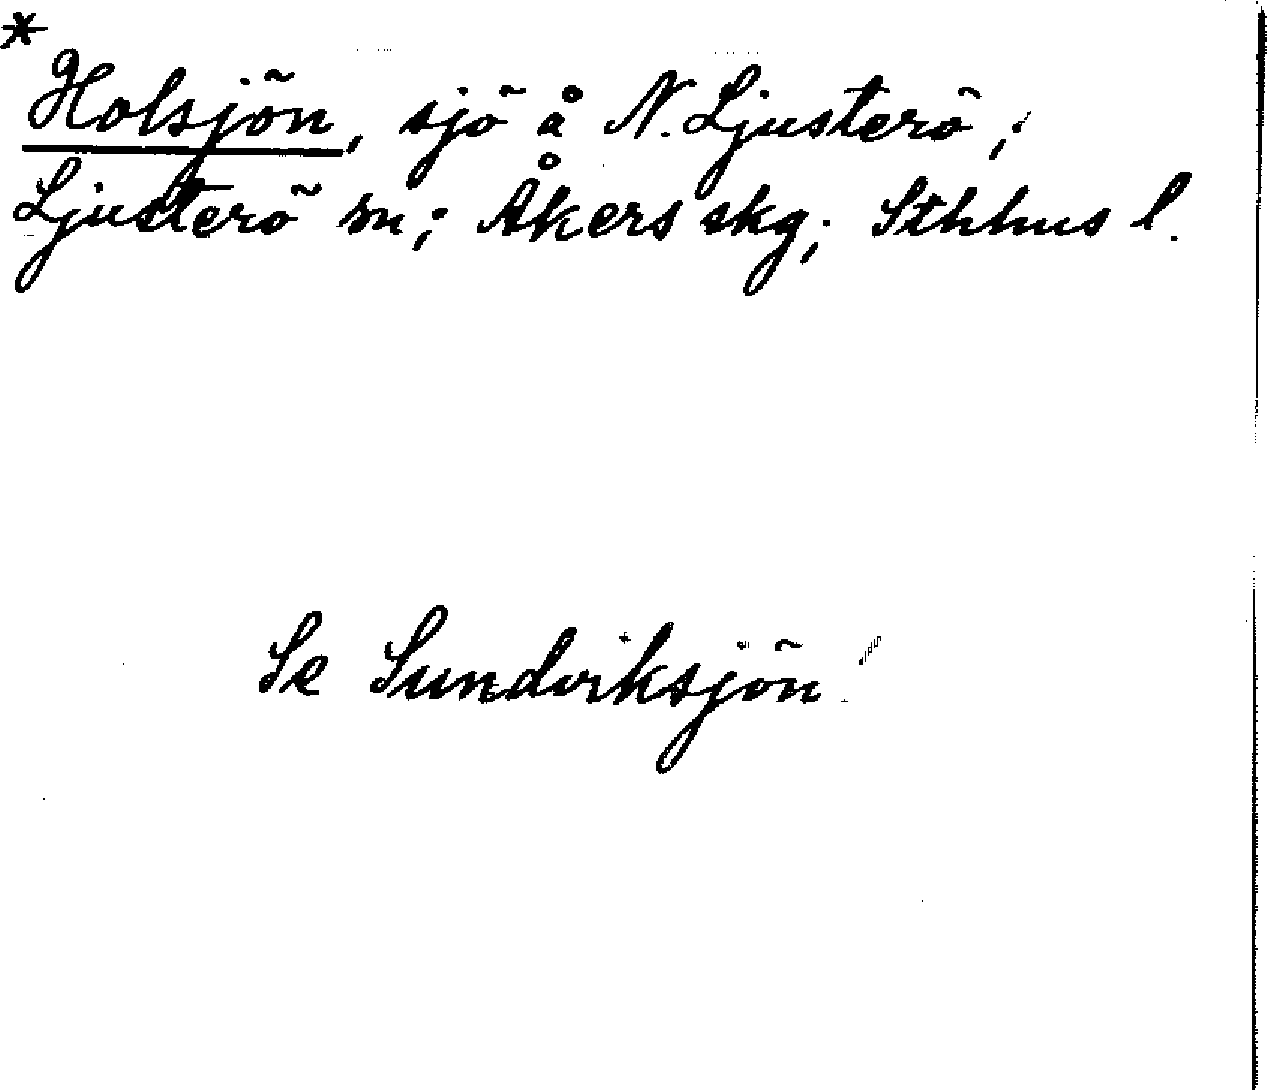 *
Holsjön, sjö å N. Ljusterö;
Ljusterö sn; Åkers skg; Sthhus l.
Se Sundviksjön!